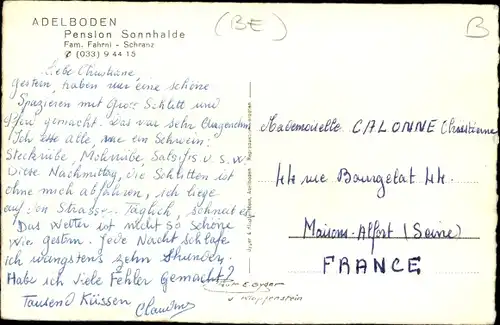 ADELBODEN
Pension Sonnhalde
Fam. Fahrni - Schranz
✆ (033) 9 44 15
(BE)
B
Liebe Christiane,
gestern, haben wir eine schöne
Spazieren mit Gros Schlitt und
gemacht. Das war sehr
Ich esse alle, wie ein Schwein:
Steckrübe, Mohrrübe, Salsifis u.s.w.
Diese Nachmittag, die Schlitten ist
ohne mich abfahren, ich liege
auf den Strasse. Täglich, schneit es
Das Wetter ist nicht so schöne
wie gestern. Jede Nacht schlafe
ich wenigstens zehn Stunden.
Habe ich viele Fehler gemacht?
Tausend Küssen
Claudine
Mademoiselle CALONNE Christiane
44 rue Bourgelat 44.
Maisons-Alfort (Seine)
FRANCE
Foto E. Gyger
v Klopfenstein